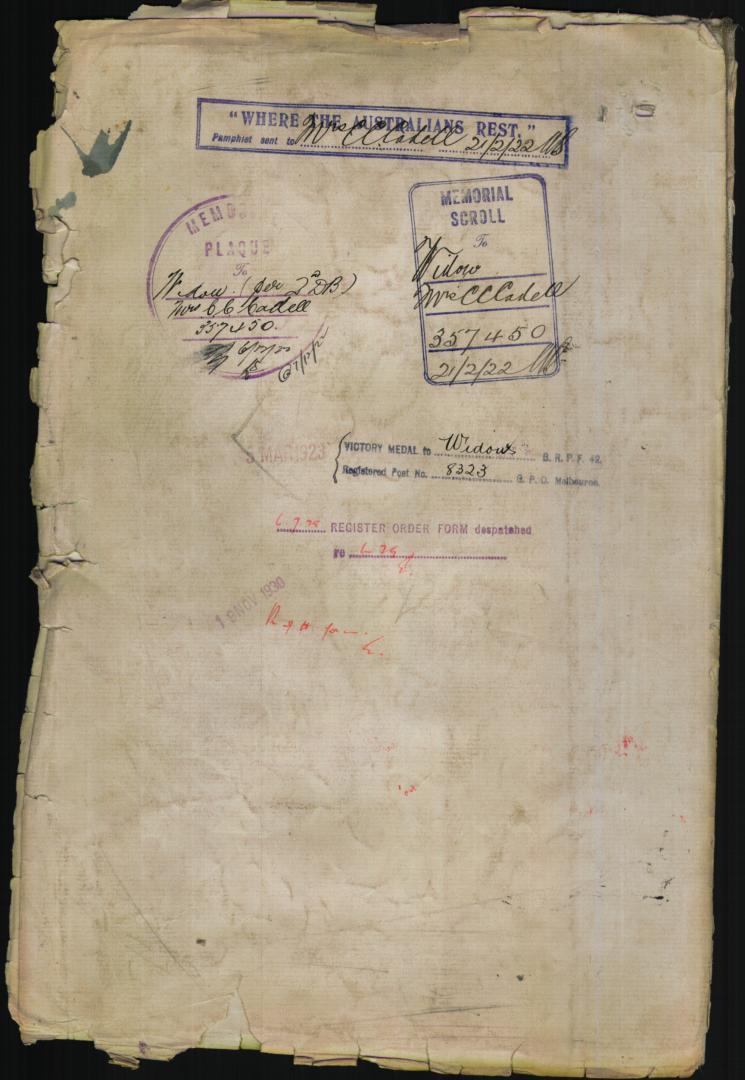 "WHERE THE AUSTRALIANS REST."
Pamphlet sent to Mrs C C Cadell 21/2/22
MEMO
PLAQUE
To
Widow. (per 2nd DB)
Mrs C C Cadell
357450.
MEMORIAL
SCROLL
To
Widow
Mrs C C Cadell
357450
21/2/22
5 MAR 1923
VICTORY MEDAL to Widow B. R. P. F. 42.
Registered Post No. 8323 G. P. O. Melbourne.
REGISTER ORDER FORM despatched
re
19 NOV 1930